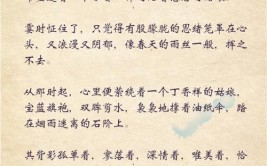 霎时怔住了，只觉得有股朦胧的思绪笼罩在心
头，又浪漫又阴郁，像春天的雨丝一般，挥之
不去。
从那时起，心里便萦绕着一个丁香样的姑娘，
宝蓝旗袍，双眸剪水，袅袅地撑着油纸伞，踏
在烟雨迷离的石阶上。
共背影孤单着，零落着，深情着，唯美着，恰